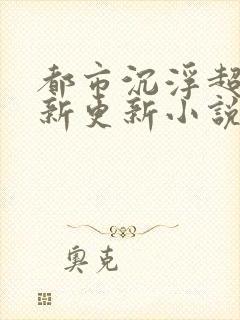 都市沉浮超
新更新小說
奧克